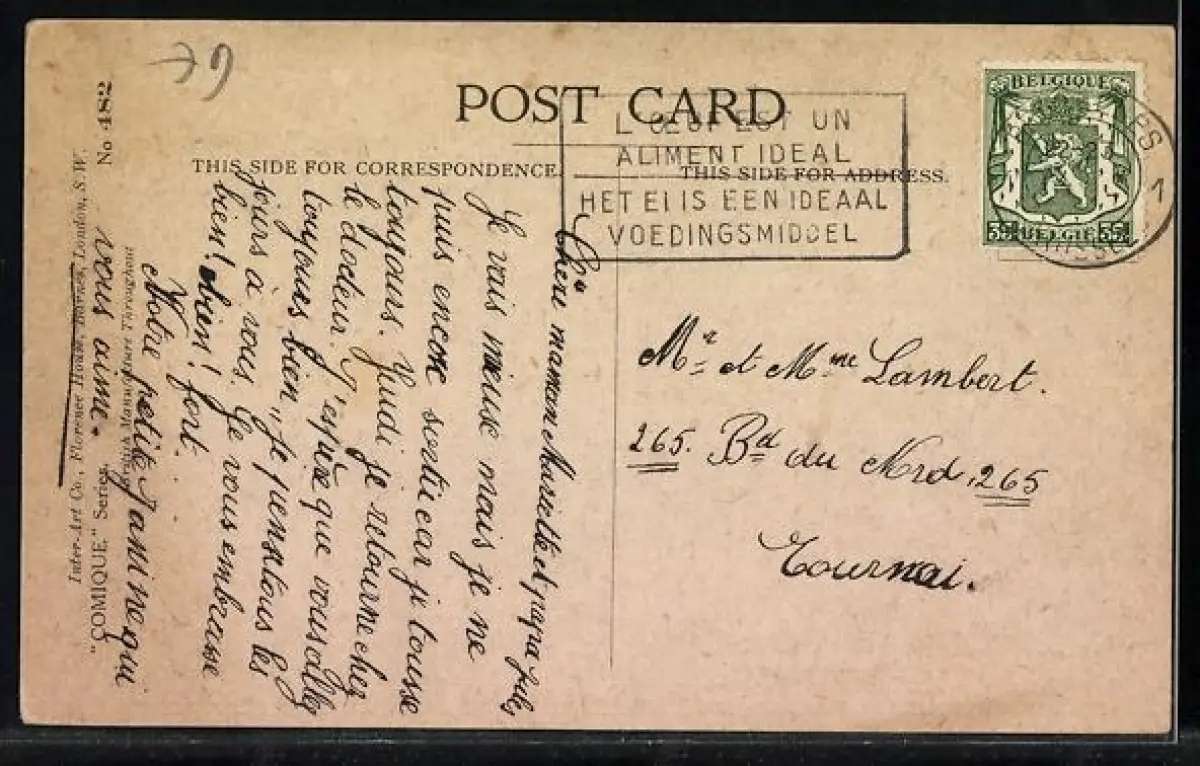 POST CARD
THIS SIDE FOR CORRESPONDENCE.
THIS SIDE FOR ADDRESS.
L'OEUF EST UN
ALIMENT IDEAL
HET EI IS EEN IDEAAL
VOEDINGSMIDDEL
BELGIQUE
35 BELGIË 35
1
Mr et Mme Lambert.
265. Bd du Nord, 265
Tournai.
Chère maman Mariette et papa
Je vais mieuse mais je ne
puis encore sortie car je tousse
toujours. Jeudi je retourne chez
le docteur. J'espère que vous allez
toujours bien, je pense tous les
jours à vous. Je vous embrasse
bien! bien! fort.
Votre petite Janine qui
vous aime.
No 482
Inter-Art Co., Florence House, Barnes, London, S.W.
"COMIQUE" Series.
British Manufacture Throughout